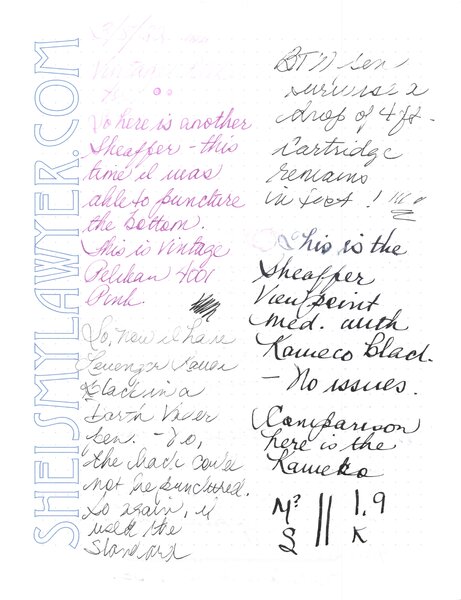 SHEISMYLAWYER.COM
So here is another
Sheaffer - this
time it was
able to puncture
the bottom.
This is vintage
Pelikan 4001
Pink.
So, now I have
Black in a
Darth Vader
pen. - No,
the back could
not be punctured.
So again, I
used the
Standard
BTW pen
survives a
drop of 4 ft.
Cartridge
remains
in foot !
This is the
Sheaffer
Viewpoint
med. with
Kameco Black.
- No issues.
(Comparison)
here is the
Kameko
M? || 1.9
S || K